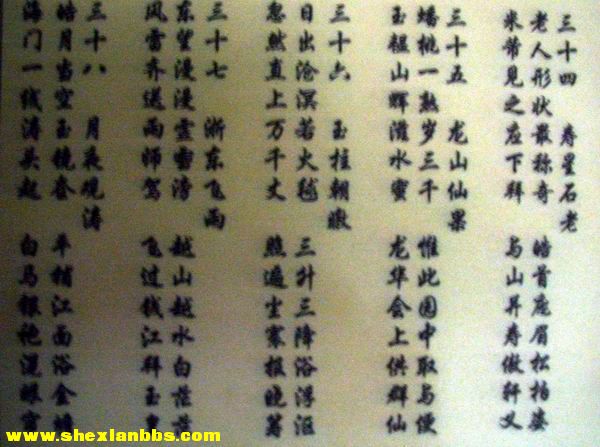 三十四 寿星石老
老人形状最称奇 皓首庞眉松柏姿
米芾見之应下拜 与山并寿傲轩
三十五 龙山仙果
蟠桃一熟岁三千 惟此园中取与便
玉韫山辉滋水蜜 龙华会上供群仙
三十六 玉柱朝暾
日出沧溟若火毬 三升三降浴浮沤
忽然直上万千丈 照遍尘寰报晓筹
三十七 浙东飞雨
东望漫漫云雪滂 越山越水白茫茫
风雷齐送雨师驾 飞过钱江拜玉
三十八 月夜观涛
皓月当空玉镜奁 平铺江面浴金
海门一线涛头起 白马银袍混眼
www.shexianbbs.com